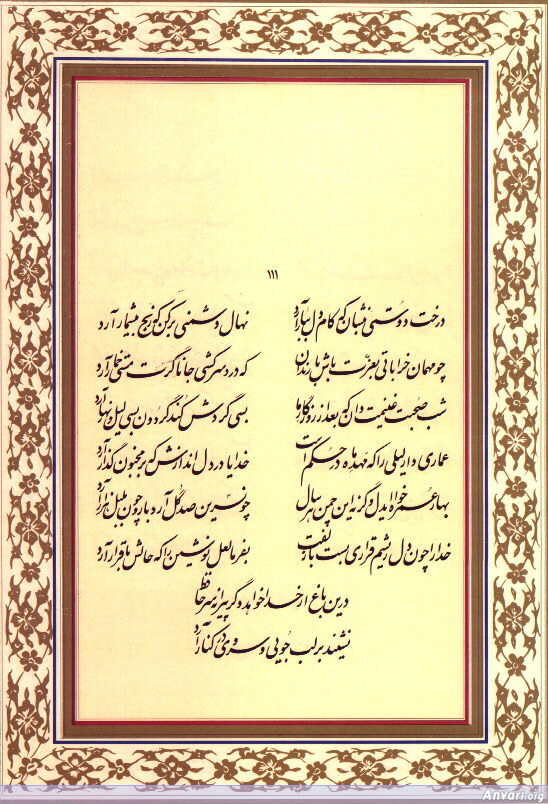 ۱۱۱
درخت دوستی بنشان که کام دل ببار آرد نهال دشمنی برکن که رنج بیشمار آرد
چو مهمان خراباتی بعزت باش با رندان که درد سر کشی جانا گرت مستی خمار آرد
شب صحبت غنیمت دان که بعد از روزگار ما بسی گردش کند گردون بسی لیل و نهار آرد
عماری دار لیلی را که مهد ماه در حکم است خدایا در دل اندازش که بر مجنون گذار آرد
بهار عمر خواه ایدل وگرنه این چمن هر سال چو نسرین صد گل آرد بار و چون بلبل هزار آرد
خدا را چون دل ریشم قراری بست با زلفت بفرما لعل نوشین را که حالش با قرار آرد
درین باغ از خدا خواهد دگر پیرانه سر حافظ
نشیند بر لب جویی و سروی در کنار آرد
Anvari.org